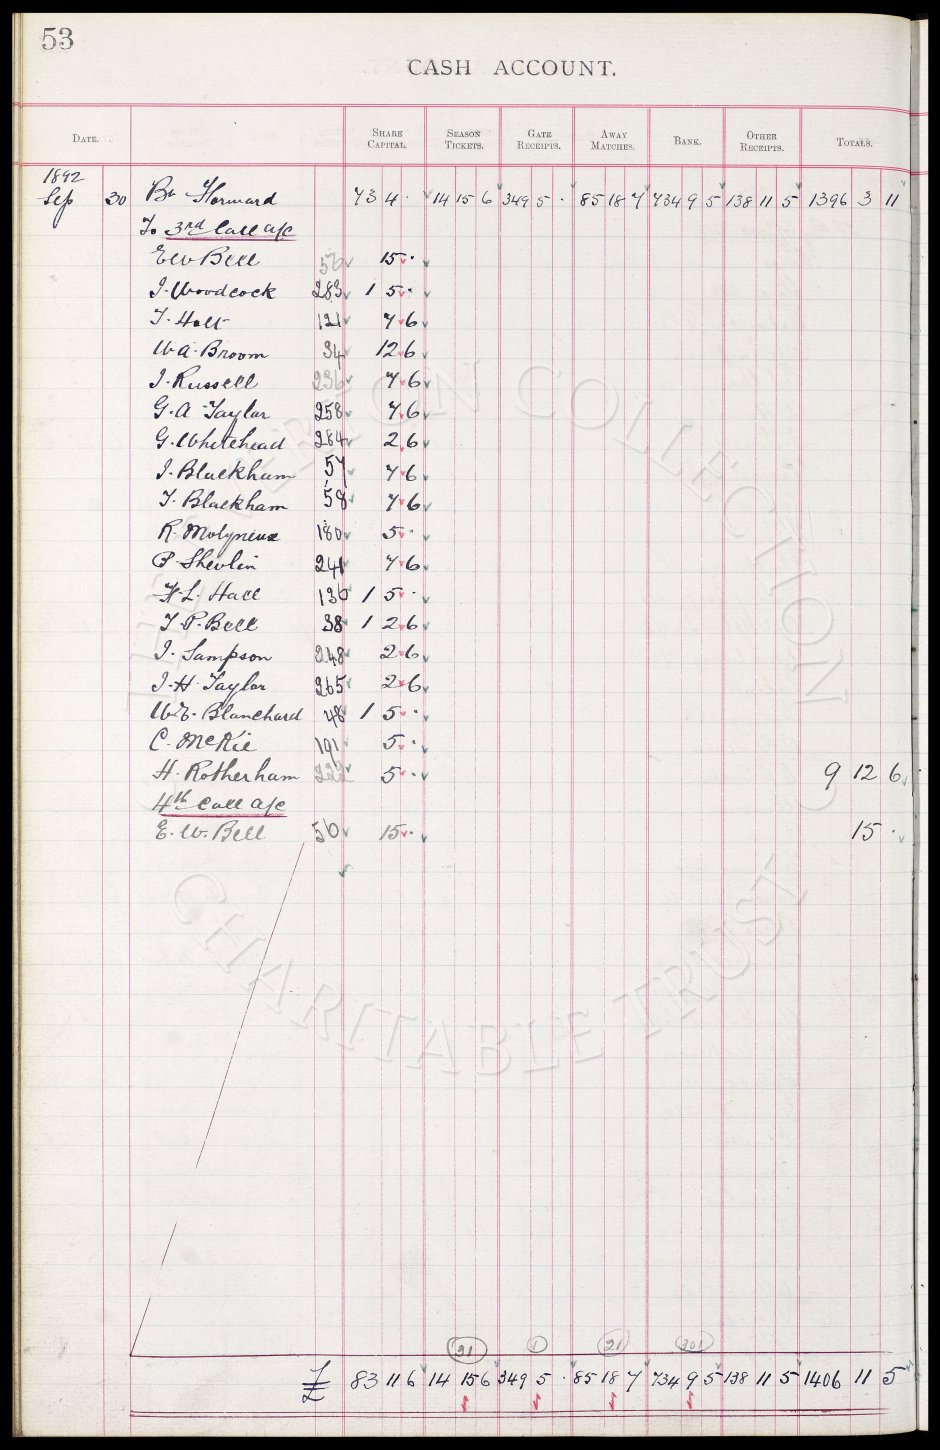 53
CASH ACCOUNT.
DATE. SHARE CAPITAL. SEASON TICKETS. GATE RECEIPTS. AWAY MATCHES. BANK. OTHER RECEIPTS. TOTALS.
1892
Sep 30 Bt Forward 73 4 · 14 15 6 349 5 · 85 18 7 734 9 5 138 11 5 1396 3 11
To 3rd Call a/c
E W Bell 50 15 ·
J. Woodcock 283 1 5 ·
T. Holt 121 7 6
W.A. Broom 34 12 6
J. Russell 236 7 6
G. A. Taylor 258 7 6
G. Whitehead 284 2 6
J. Blackham 57 7 6
T. Blackham 58 7 6
R. Molyneux 180 5 ·
P. Shevlin 241 7 6
F. L. Hall 130 1 5 ·
T. P. Bell 38 1 2 6
J. Sampson 248 2 6
J. H. Taylor 265 2 6
W.E. Blanchard 48 1 5 ·
C. McKie 191 5 ·
H. Rotherham 222 5 · 9 12 6
4th Call a/c
E. W. Bell 50 15 · 15 ·
21 1 21 201
£ 83 11 6 14 15 6 349 5 · 85 18 7 734 9 5 138 11 5 1406 11 5
EVERTON COLLECTION
CHARITABLE TRUST